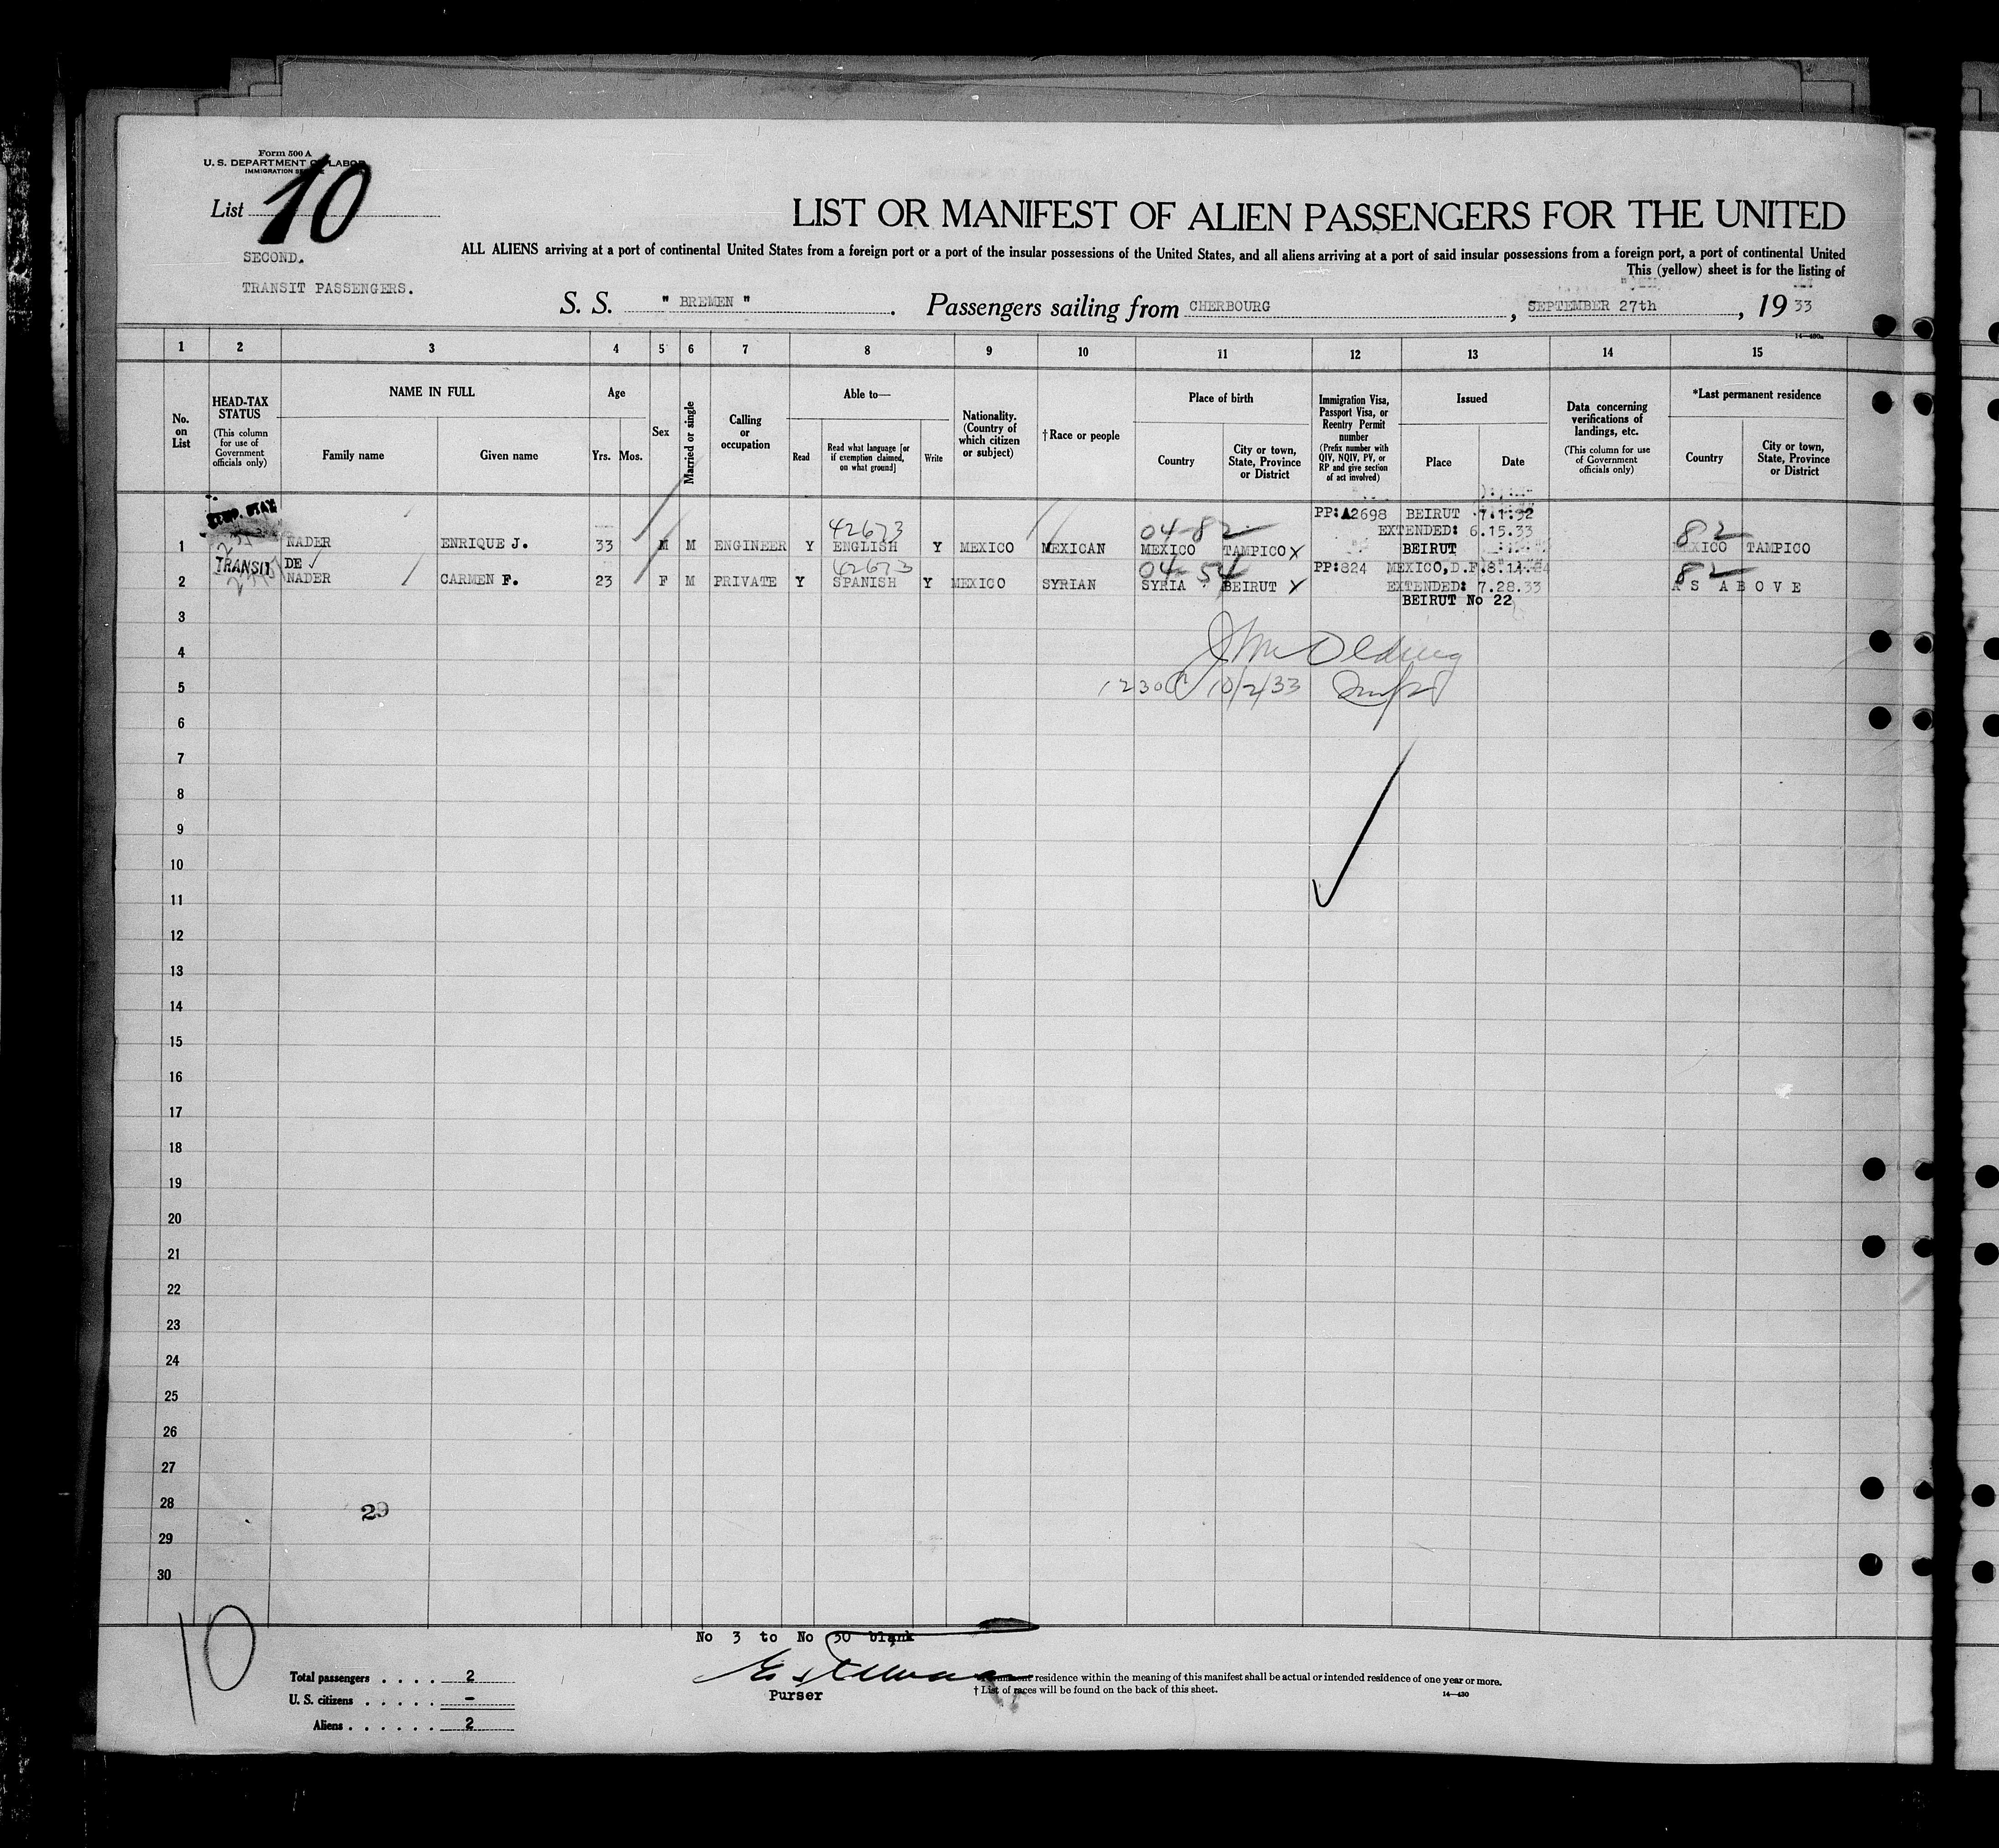 Form 500 A
U. S. DEPARTMENT OF LABOR
IMMIGRATION SERVICE
List 10
LIST OR MANIFEST OF ALIEN PASSENGERS FOR THE UNITED
ALL ALIENS arriving at a port of continental United States from a foreign port or a port of the insular possessions of the United States, and all aliens arriving at a port of said insular possessions from a foreign port, a port of continental United
SECOND.
This (yellow) sheet is for the listing of
TRANSIT PASSENGERS.
S. S. " BREMEN " . Passengers sailing from CHERBOURG , SEPTEMBER 27th , 19 33
14—430a
1 2 3 4 5 6 7 8 9 10 11 12 13 14 15
No. on List
HEAD-TAX STATUS
(This column for use of Government officials only)
NAME IN FULL
Family name
Given name
Age
Yrs. Mos.
Sex
Married or single
Calling or occupation
Able to—
Read
Read what language [or if exemption claimed, on what ground]
Write
Nationality. (Country of which citizen or subject)
†Race or people
Place of birth
Country
City or town, State, Province or District
Immigration Visa, Passport Visa, or Reentry Permit number
(Prefix number with QIV, NQIV, PV, or RP and give section of act involved)
Issued
Place
Date
Data concerning verifications of landings, etc.
(This column for use of Government officials only)
*Last permanent residence
Country
City or town, State, Province or District
PP:A2698 BEIRUT 7.1.32
42673 04-82 EXTENDED: 6.15.33 82
1 NADER ENRIQUE J. 33 M M ENGINEER Y ENGLISH Y MEXICO MEXICAN MEXICO TAMPICO X BEIRUT MEXICO TAMPICO
TRANSIT DE ✓ 42673 04-54 PP:824 MEXICO,D.F. 82
2 NADER CARMEN F. 23 F M PRIVATE Y SPANISH Y MEXICO SYRIAN SYRIA BEIRUT X EXTENDED: 7.28.33 AS ABOVE
BEIRUT No 22
3
4
5 10/2/33
6
7
8
9
10
11
12
13
14
15
16
17
18
19
20
21
22
23
24
25
26
27
28 29
29
30
10
No 3 to No 30 blank
Total passengers . . . . 2
U. S. citizens . . . . . –
Aliens . . . . . . 2
Purser
residence within the meaning of this manifest shall be actual or intended residence of one year or more.
† List of races will be found on the back of this sheet.
14—430